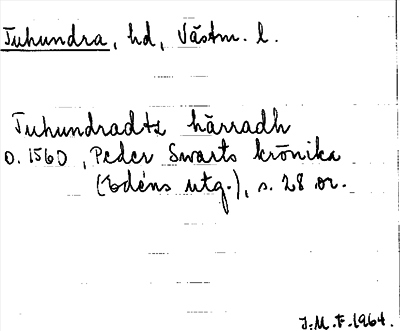 Tuhundra, hd, Västm. l.
Tuhundradts härradh
o. 1560, Peder Swarts krönika
(Edéns utg.), s. 28 or.
J.M.F. 1964.